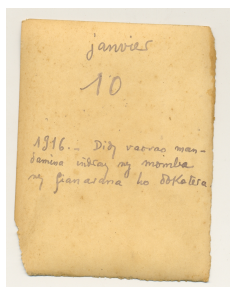 janvier
10
1916._ Didy vaovao man-
damina indray ny momba
ny fianarana ho dokotera